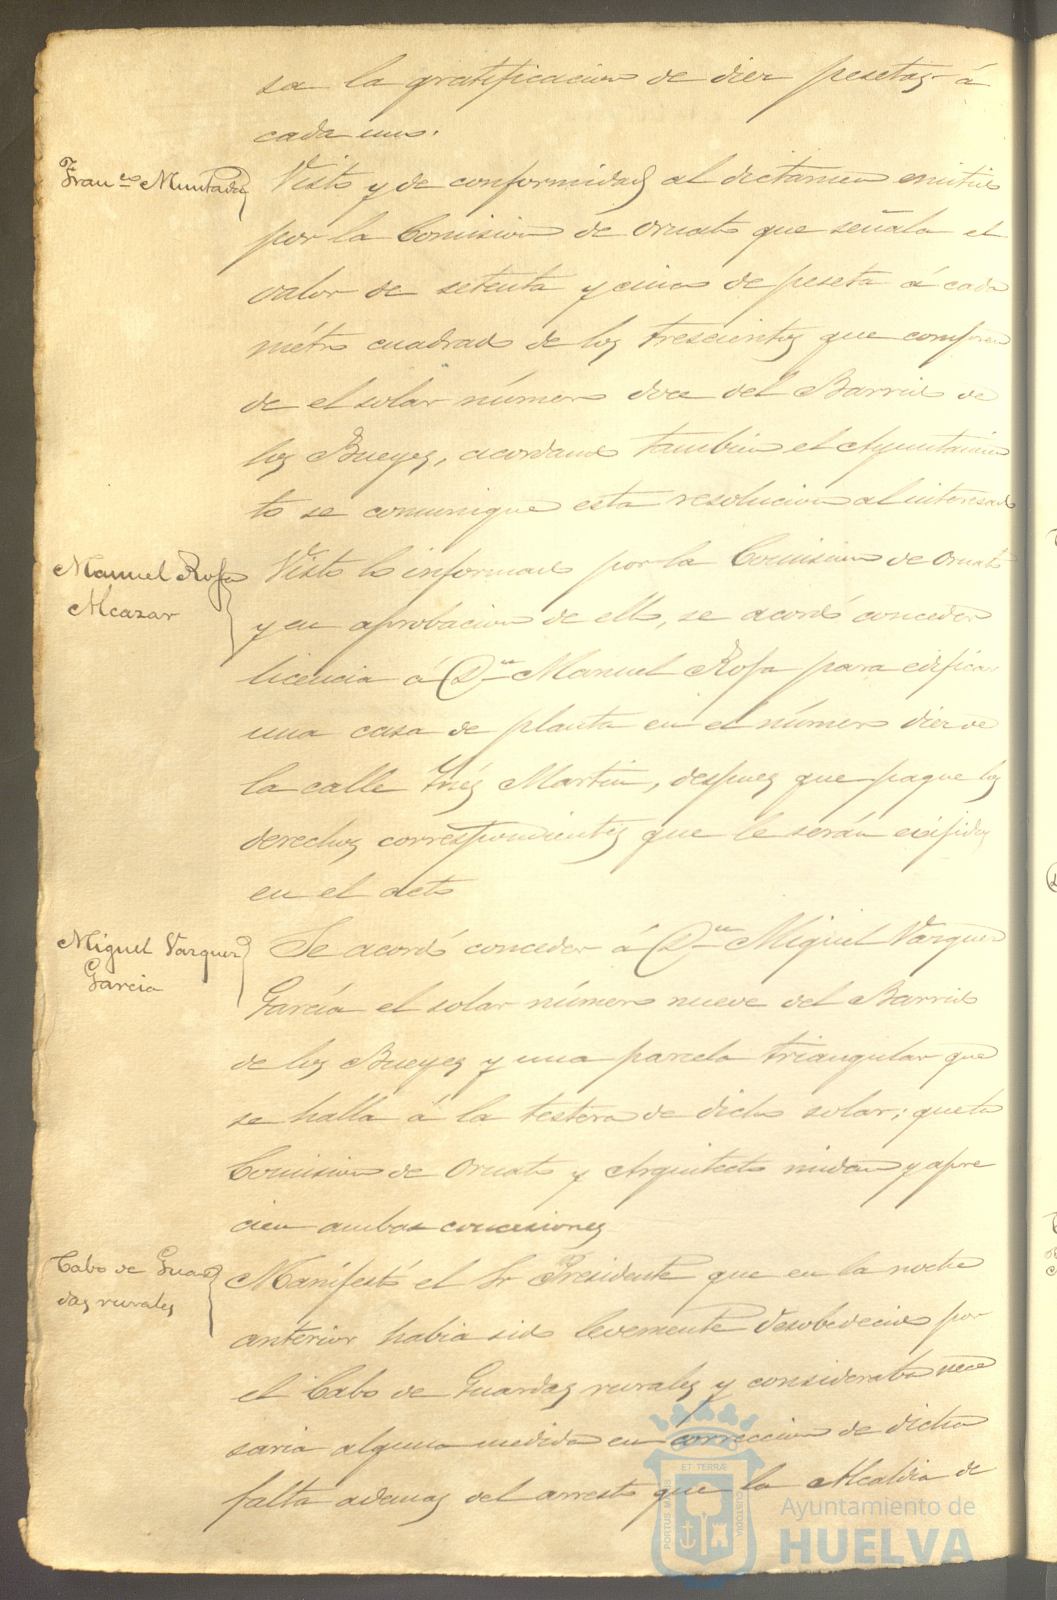 sa la gratificacion de diez pesetas á
cada uno.
Fran.co Muntadas
Visto y de conformidad al dictamen emitido
por la Comision de Ornato que señala el
valor de setenta y cinco de peseta á cada
métro cuadrado de los trescientos que compren
de el solar número doce del Barrio de
los Bueyes, acordando tambien el Ayuntamien
to se comunique esta resolucion al interesado
Manuel Rofa
Alcazar
Visto lo informado por la Comision de Ornato
y en aprobacion de ello, se acordó conceder
licencia á Dn Manuel Rofa para edificar
una casa de planta en el número diez de
la calle Inés Martin, despues que pague los
derechos correspondientes que le serán exijidos
en el acto
Miguel Vazquez
Garcia
Se acordó conceder á Dn Miguel Vazquez
García el solar número nueve del Barrio
de los Bueyes y una parcela triangular que
se halla á la testera de dicho solar; que la
Comision de Ornato y Arquitecto midan y apre
cien ambas concesiones
Cabo de Guar
das rurales
Manifestó el Sr Presidente que en la noche
anterior habia sido levemente desobedecido por
el Cabo de Guardas rurales y consideraba nece
saria alguna medida en correccion de dicha
falta ademas del arresto que la Alcaldia de
PORTUS MARIS
ET TERRÆ
CUSTODIA
Ayuntamiento de
HUELVA